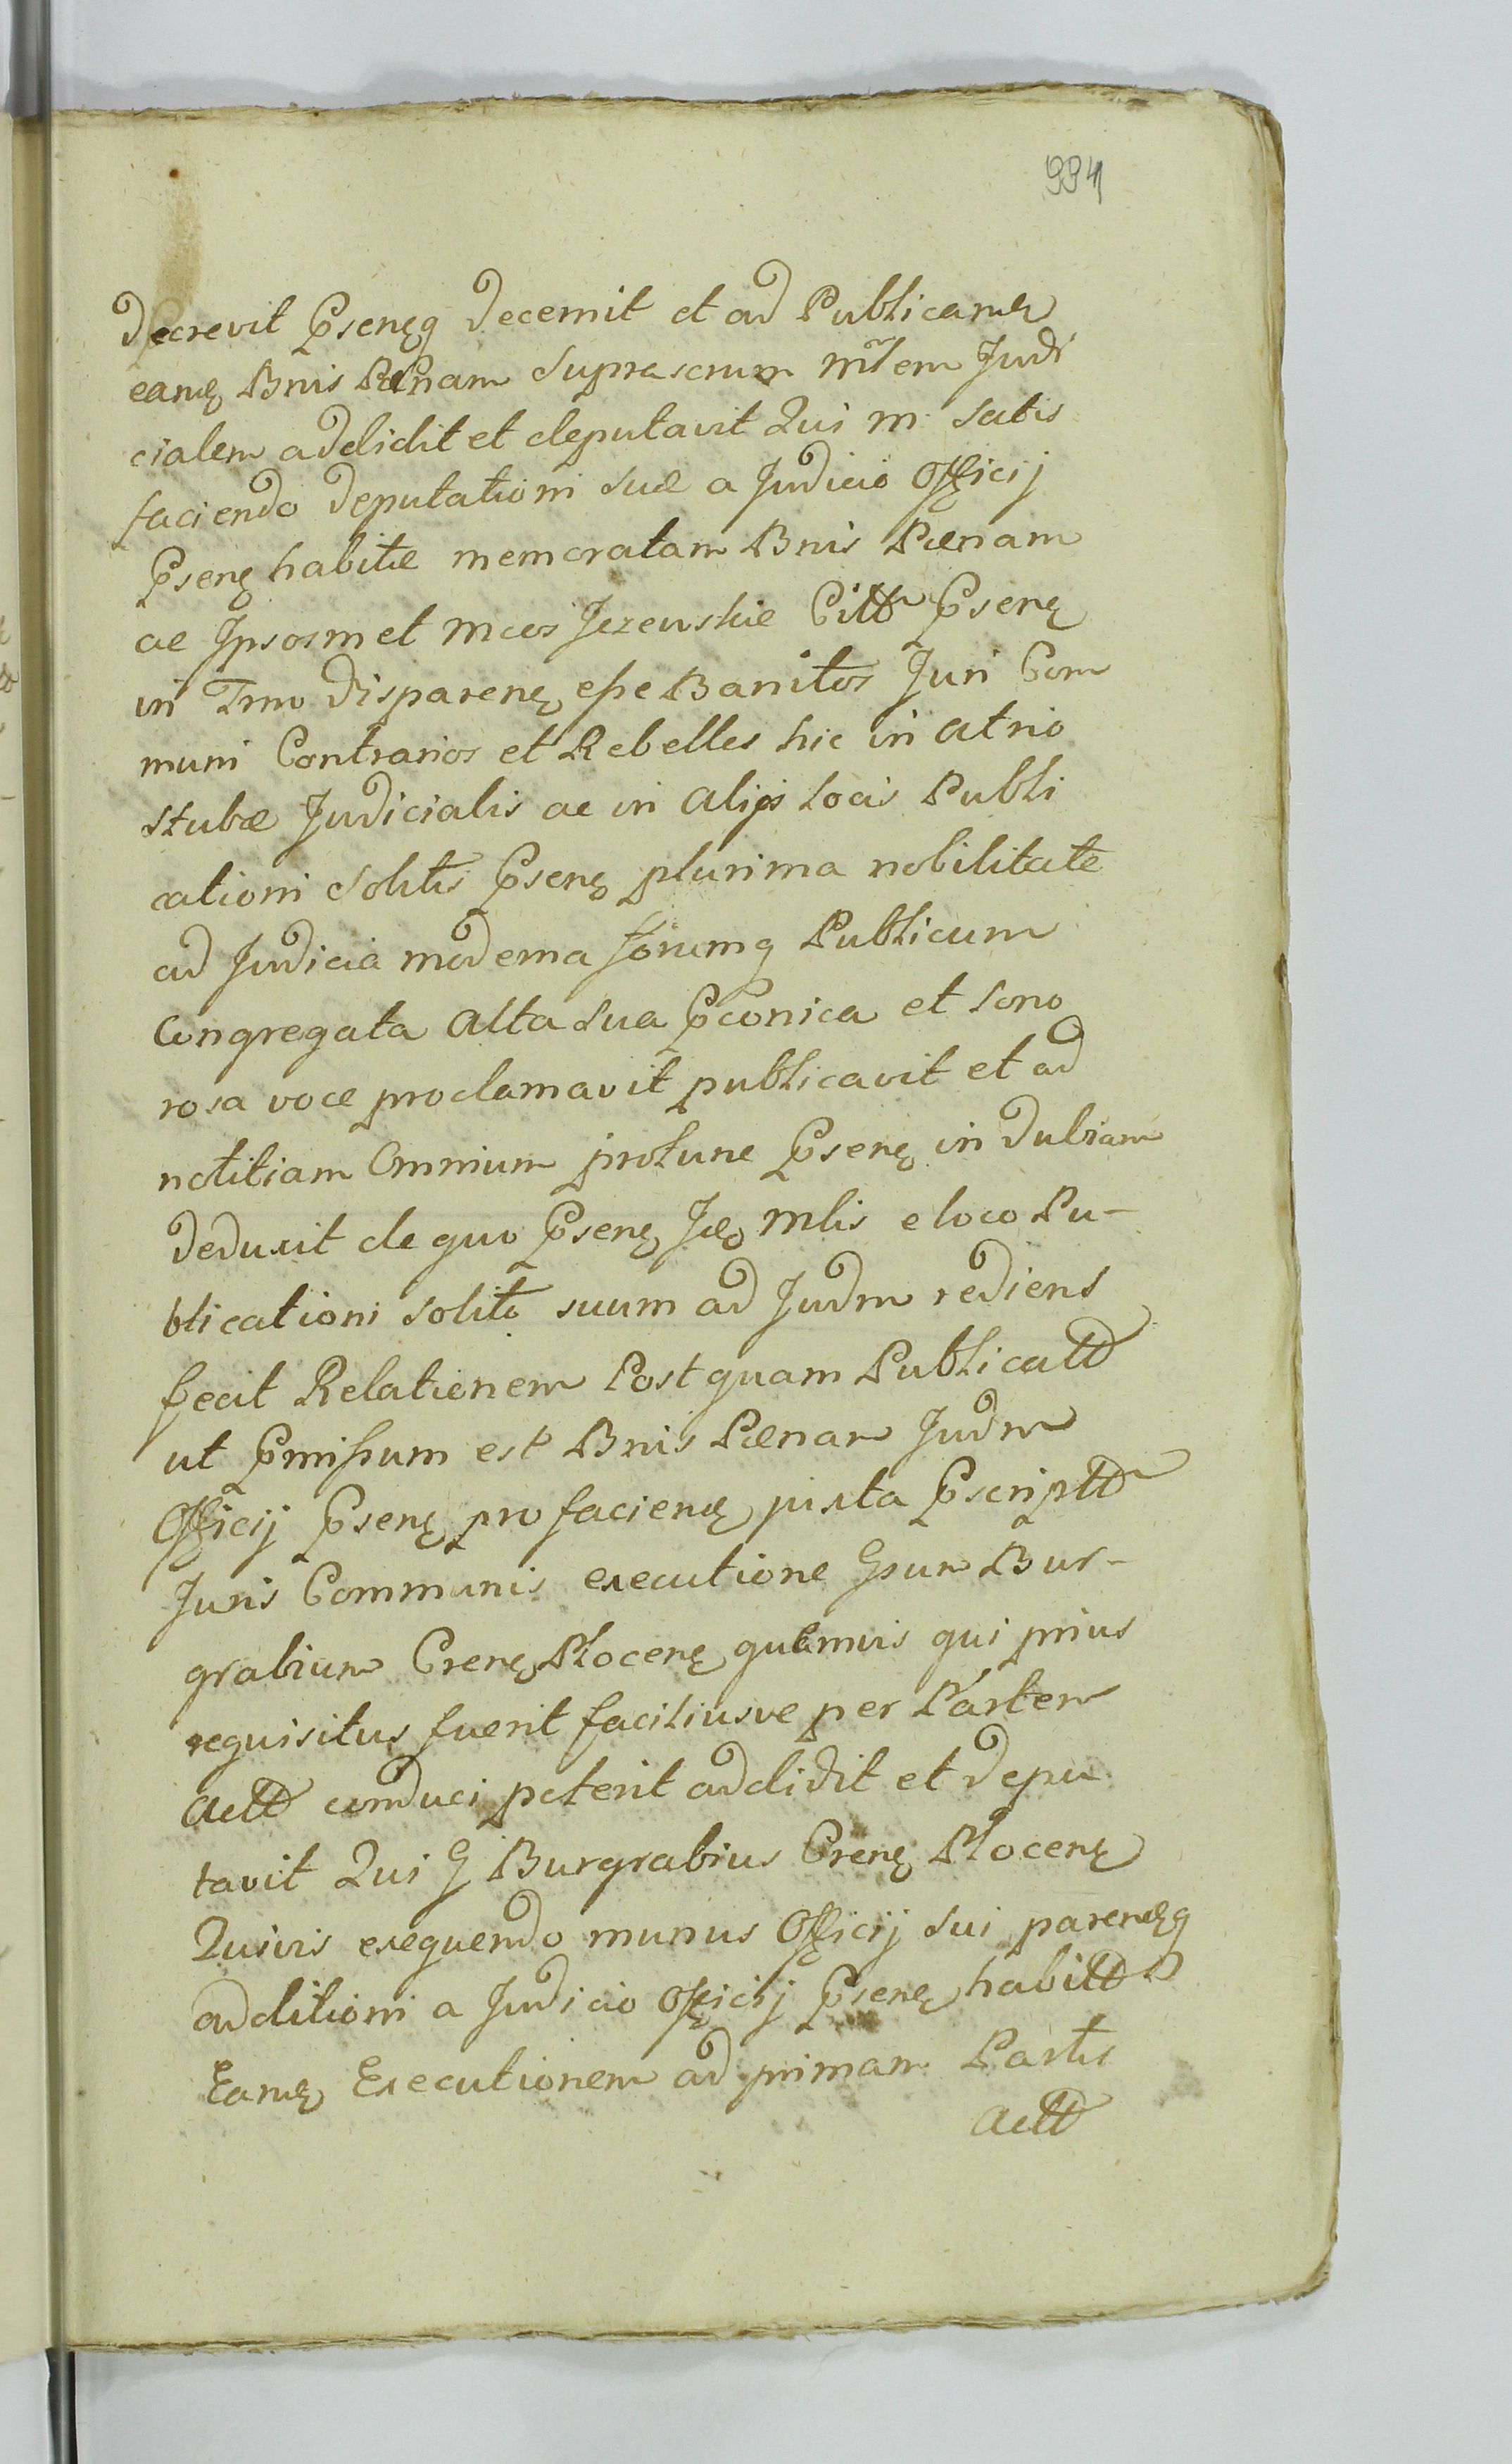 994
decrevit Psenęq decernit et ad Publicanḑ
eanḑ Bnis Pænam suprascrum mrlem Judi
cialem addidit et deputavit Qui m. satis
faciendo deputationi suæ a Judicio Officij
Psenę habitæ memoratam Bnis Pænam
ac Ipsosmet mcos Jezewskie Citt Psenę
in Trmo disparenę esse Banitos Juri Com
muni Contrarios et Rebelles hic in atrio
stubæ Judicialis ac in alijs locis Publi
cationi solitis Psenę plurima nobilitate
ad Judicia moderna forumq Publicum
Congregata alta sua Pconica et sono
rosa voce proclamavit publicavit et ad
notitiam Omnium protunc Psenę indubiam
deduxit de quo Psenę Jdę Mlis e loco Pu-
blicationi solito suum ad Judm rediens
fecit Relationem Postquam Publicatt
ut Pmissum est Bnis Pænam Judm
Officij Psenę pro faciendę juxta Pscriptt
Juris Communis executione Gsum Bur-
grabium Crenę Plocenę quemvis qui prius
requisitus fuerit faciliusve per Partem
actt conduci poterit addidit et depu
tavit Qui G Burgrabius Crenę Plocenę
Quivis exequendo munus Officij sui parendęq
additioni a Judicio Officij Psenę habitt
Eandę Executionem ad primam Partis
actt